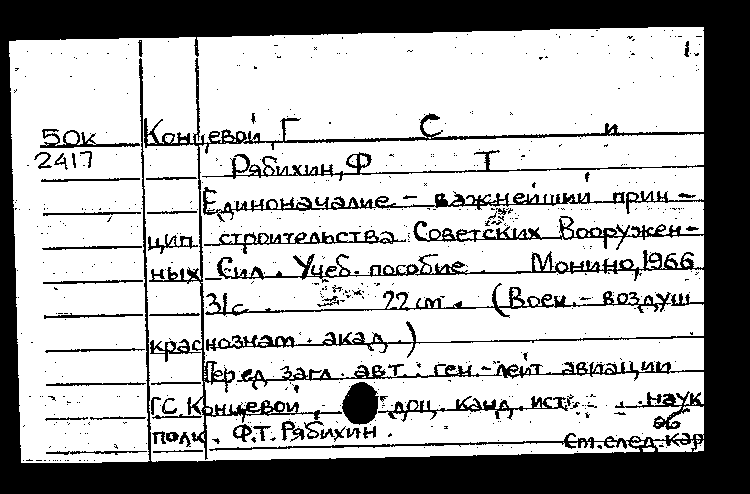 1.
50к Концевой, Г С и
2417 Рябихин, Ф Т
Единоначалие - важнейший прин-
цип строительства Советских Вооружен-
ных Сил. Учеб. пособие. Монино, 1966
31с. 22 см. (Воен.-воздуш
краснознам. акад.)
Перед загл. авт.: ген.-лейт. авиации
Г.С. Концевой, доц. канд. ист. наук
полк. Ф.Т. Рябихин.
См. след. кар